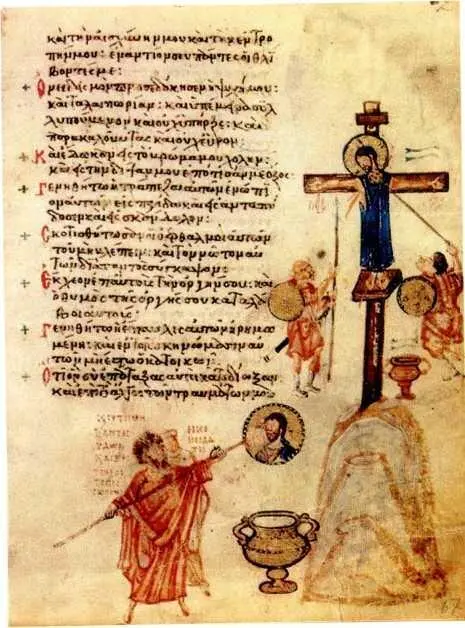 καὶ τὴν αἰσχύνην μου καὶ τὴν ἐντρο
πήν μου: ἐναντίον σου πάντες οἱ θλί
βοντές με:
Ὀνειδισμὸν προσεδόκησεν ἡ ψυχή μου:
καὶ ταλαιπωρίαν: καὶ ὑπέμεινα συλ
λυπούμενον καὶ οὐχ ὑπῆρξε: καὶ
παρακαλοῦντας καὶ οὐχ εὗρον:
Καὶ ἔδωκαν εἰς τὸ βρῶμά μου χολὴν:
καὶ εἰς τὴν δίψαν μου ἐπότισάν με ὄξος
Γενηθήτω ἡ τράπεζα αὐτῶν ἐνώπι
ον αὐτῶν εἰς παγίδα καὶ εἰς ἀνταπό
δοσιν καὶ εἰς σκάνδαλον:
Σκοτισθήτωσαν οἱ ὀφθαλμοὶ αὐτῶν
τοῦ μὴ βλέπειν: καὶ τὸν νῶτον αὐ
τῶν διὰ παντὸς σύγκαμψον:
Ἔκχεον ἐπ' αὐτοὺς τὴν ὀργήν σου: καὶ
ὁ θυμὸς τῆς ὀργῆς σου καταλά
βοι αὐτούς:
Γενηθήτω ἡ ἔπαυλις αὐτῶν ἠρημω
μένη: καὶ ἐν τοῖς σκηνώμασιν αὐ
τῶν μὴ ἔστω ὁ κατοικῶν:
Ὅτι ὃν σὺ ἐπάταξας αὐτοὶ κατεδίωξαν
καὶ ἐπὶ τὸ ἄλγος τῶν τραυμάτων μου
67